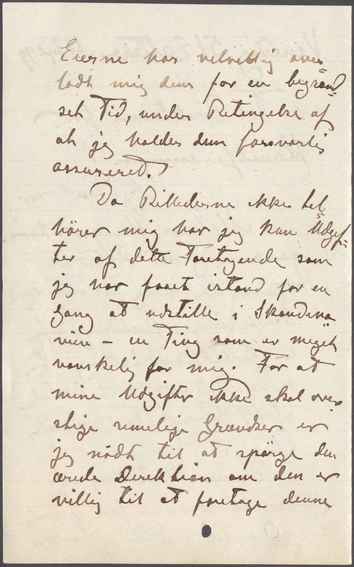 Eierne har velvillig over
ladt mig dem for en begränd
set Tid, under Betingelse af
at jeg holder dem forsvarlig
assureret.
Da Billederne ikke til
hörer mig har jeg kun Udgif
ter af dette Foretagende som
jeg har faaet istand for en
Gang at udstille i Skandina
vien – en Ting som er meget
vanskelig for mig. For at
mine Udgifter ikke skal over
stige rimelige Grændser er
jeg nödt til at spörge den
ærede Direktion om den er
villig til at foretage denne